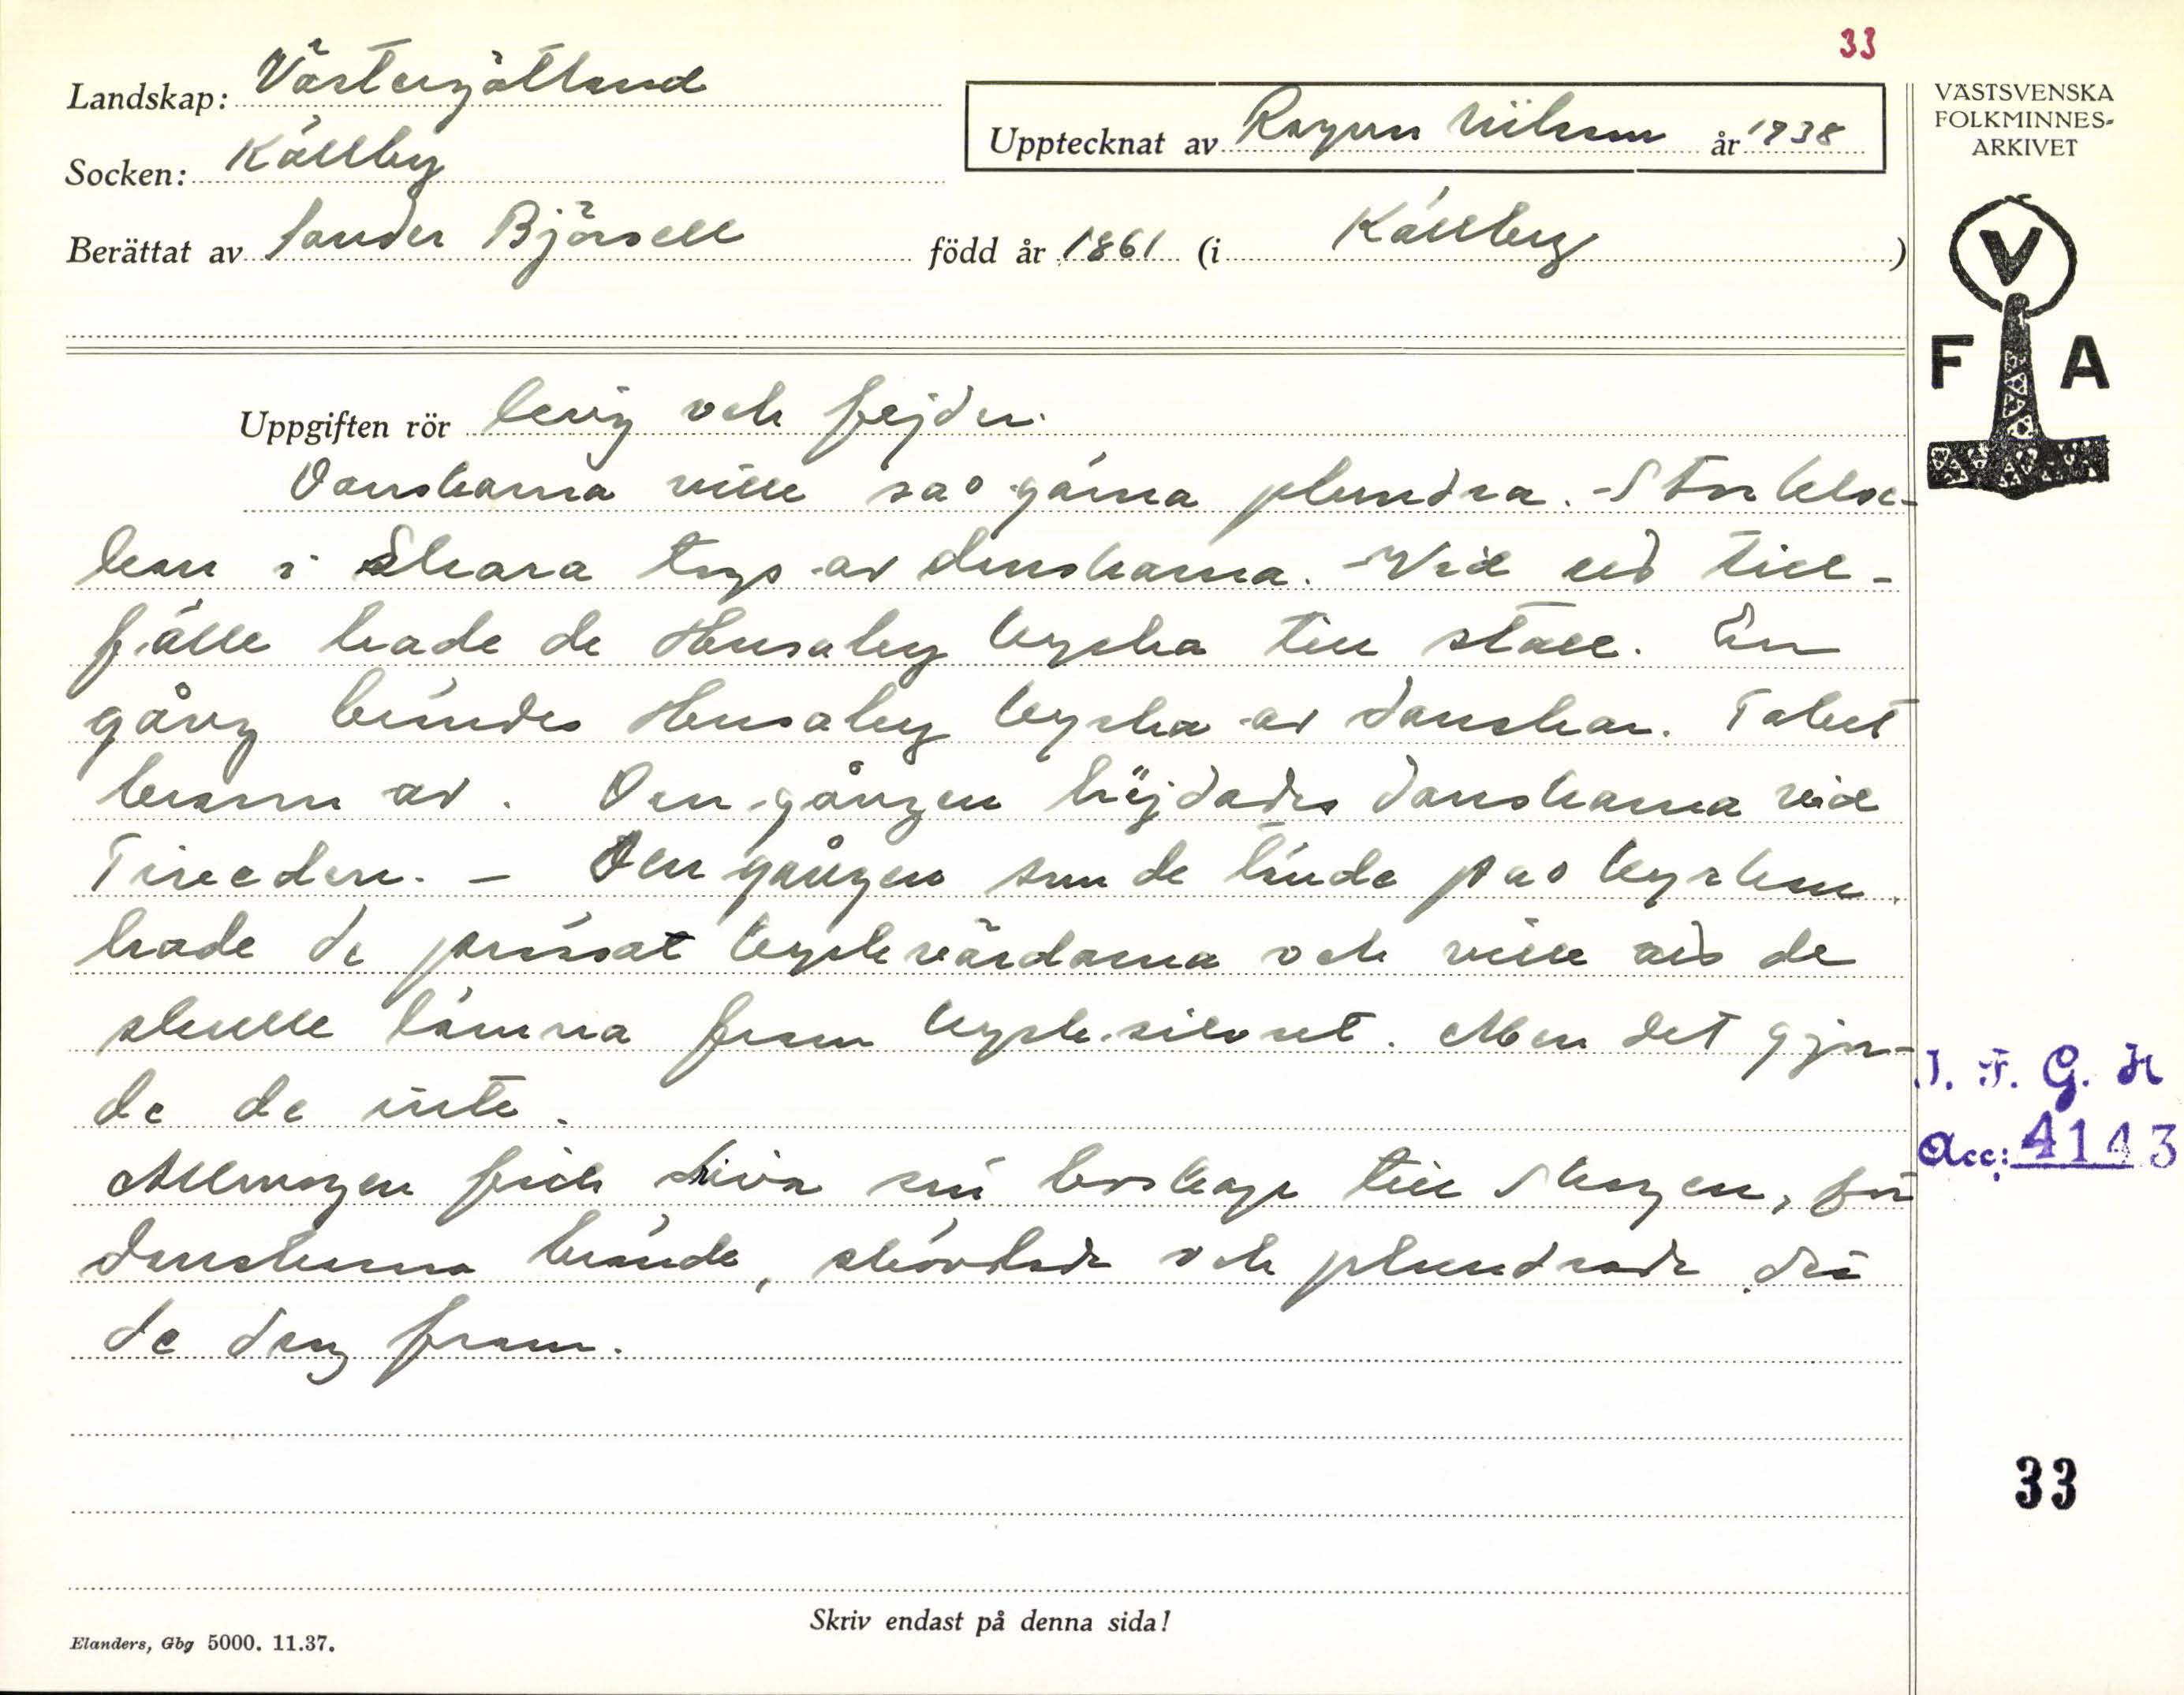 33
Landskap: Västergötland
Socken: Källby
Berättat av Sander Björsell född år 1861 (i Källby)
Upptecknat av Ragnar Nilsson år 1938
VÄSTSVENSKA
FOLKMINNES-
ARKIVET
V
F A
Uppgiften rör krig och fejder.
Danskarna ville sao gärna plundra. - Storkloc-
kan i Skara togs av danskarna. - Vid ett till-
fälle hade de Husaby kyrka till stall. En
gång brändes Husaby kyrka av danskar. Taket
brann av. Den gången hejdades danskarna vid
Tiveden. - Den gången som de tände pao kyrkan,
hade de pressat kyrkvärdarna och ville att de
skulle lämna fram kyrksilvret. Men det gjor-
de de inte.
Allmogen fick driva sin boskap till skogen, för
danskarna brände, skövlade och plundrade där
de drog fram.
I. F. G. H
Acc: 4143
33
Skriv endast på denna sida!
Elanders, Gbg 5000. 11.37.